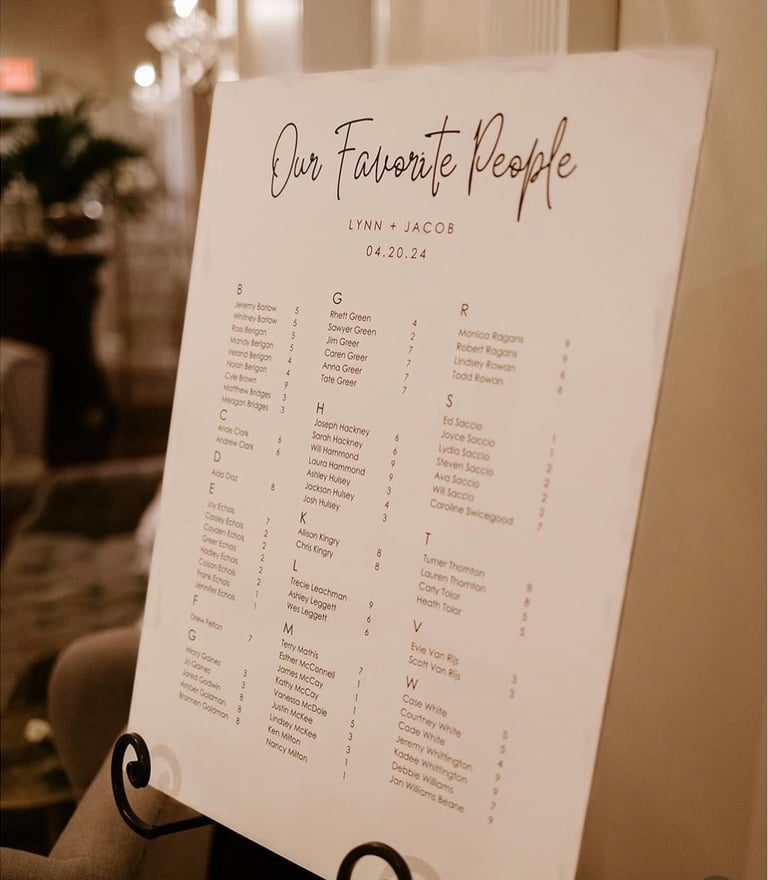 Our Favorite People
LYNN + JACOB
04.20.24
B
Jeremy Barlow 5
Whitney Barlow 5
Ross Berigan 5
Mandy Berigan 5
Ireland Berigan 4
Nolan Berigan 4
Cyle Brown 9
Matthew Bridges 3
Meagan Bridges 3
C
Ande Clark 6
Andrew Clark 6
D
Aida Diaz 8
E
Joy Echols 7
Cassey Echols 2
Cayden Echols 2
Greer Echols 2
Hadley Echols 2
Cason Echols 2
Frank Echols 1
Jennifer Echols 1
F
Drew Felton 7
G
Hilary Gaines 3
Jo Gaines 3
Jared Godwin 8
Amber Goldman 8
Brannen Goldman 8
G
Rhett Green 4
Sawyer Green 2
Jim Greer 7
Caren Greer 7
Anna Greer 7
Tate Greer 7
H
Joseph Hackney 6
Sarah Hackney 6
Will Hammond 9
Laura Hammond 9
Ashley Hulsey 3
Jackson Hulsey 4
Josh Hulsey 3
K
Allison Kingry 8
Chris Kingry 8
L
Trecie Leachman 9
Ashley Leggett 6
Wes Leggett 6
M
Terry Mathis 7
Esther McConnell 1
James McCay 1
Kathy McCay 1
Vanessa McDole 5
Justin McKee 3
Lindsey McKee 3
Ken Milton 1
Nancy Milton 1
R
Monica Ragans 9
Robert Ragans 9
Lindsey Rowan 6
Todd Rowan 6
S
Ed Saccio 1
Joyce Saccio 1
Lydia Saccio 2
Steven Saccio 2
Ava Saccio 2
Will Saccio 2
Caroline Swicegood 7
T
Turner Thornton 8
Lauren Thornton 8
Carly Tolar 5
Heath Tolar 5
V
Evie Van Rijs 3
Scott Van Rijs 3
W
Case White 5
Courtney White 5
Cade White 4
Jeremy Whittington 9
Kadee Whittington 9
Debbie Williams 7
Jan Williams Beane 9